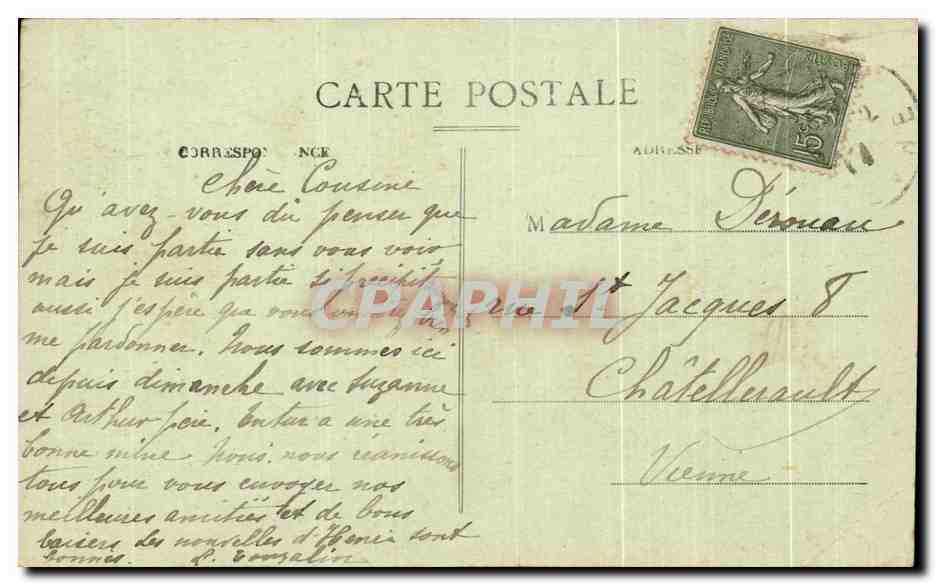 CARTE POSTALE
CORRESPO NCE
ADRESSE
REPUBLIQUE FRANCAISE
15c
Chère Cousine
Qu'avez-vous dû penser que
je suis partie sans vous voir
mais je suis partie si précipité
aussi j'espère que voudrez bien
me pardonner. Nous sommes ici
depuis dimanche avec Suzanne
et Arthur père. a une très
bonne mine Nous nous réunissons
tous pour vous envoyer nos
meilleures amitiés et de bons
baisers Les nouvelles d'Henri sont
bonnes.
Madame Dérouau
rue St Jacques 8
Châtellerault
Vienne
CPAPHIL